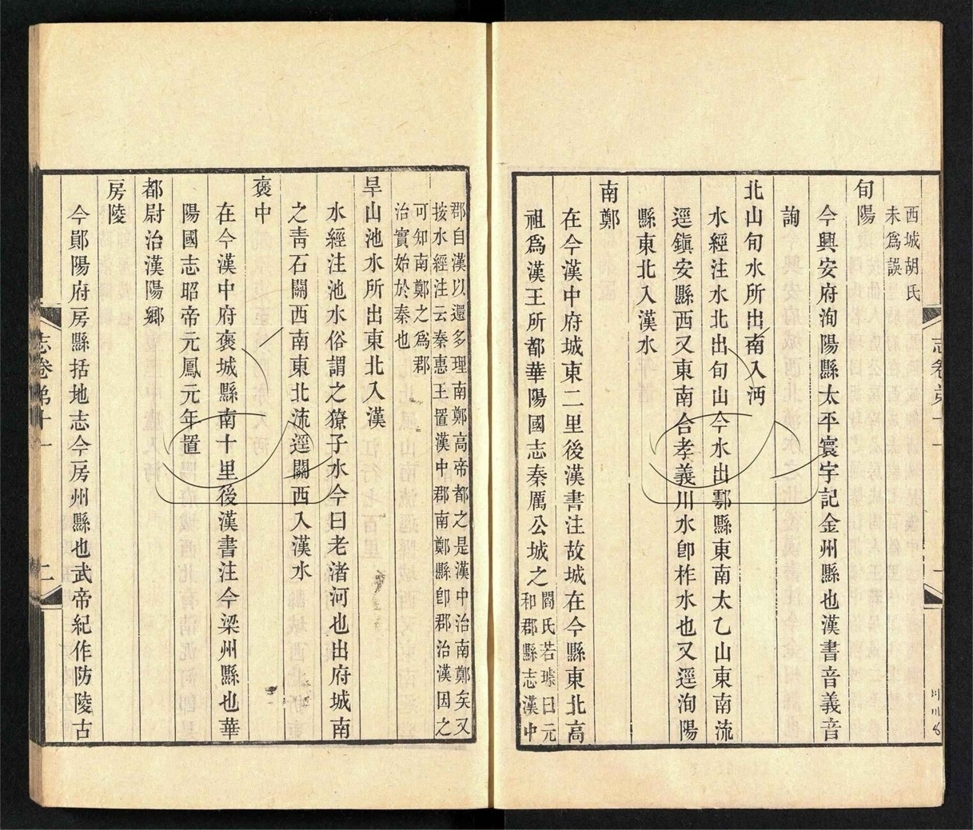 西城胡氏
未爲誤
旬陽
今興安府洵陽縣太平寰宇記金州縣也漢書音義音
詢
北山旬水所出南入沔
水經注水北出旬山今水出鄠縣東南太乙山東南流
逕鎭安縣西又東南合孝義川水卽柞水也又逕洵陽
縣東北入漢水
南鄭
在今漢中府城東二里後漢書注故城在今縣東北高
祖爲漢王所都華陽國志秦厲公城之
閻氏若璩曰元
和郡縣志漢中
郡自漢以還多理南鄭高帝都之是漢中治南鄭矣又
按水經注云秦惠王置漢中郡南鄭縣卽郡治漢因之
可知南鄭之爲郡
治實始於秦也
旱山池水所出東北入漢
水經注池水俗謂之獠子水今曰老渚河也出府城南
之靑石關西南東北流逕關西入漢水
褒中
在今漢中府褒城縣南十里後漢書注今梁州縣也華
陽國志昭帝元鳳元年置
都尉治漢陽鄉
房陵
今鄖陽府房縣括地志今房州縣也武帝紀作防陵古
志卷弟十一
二